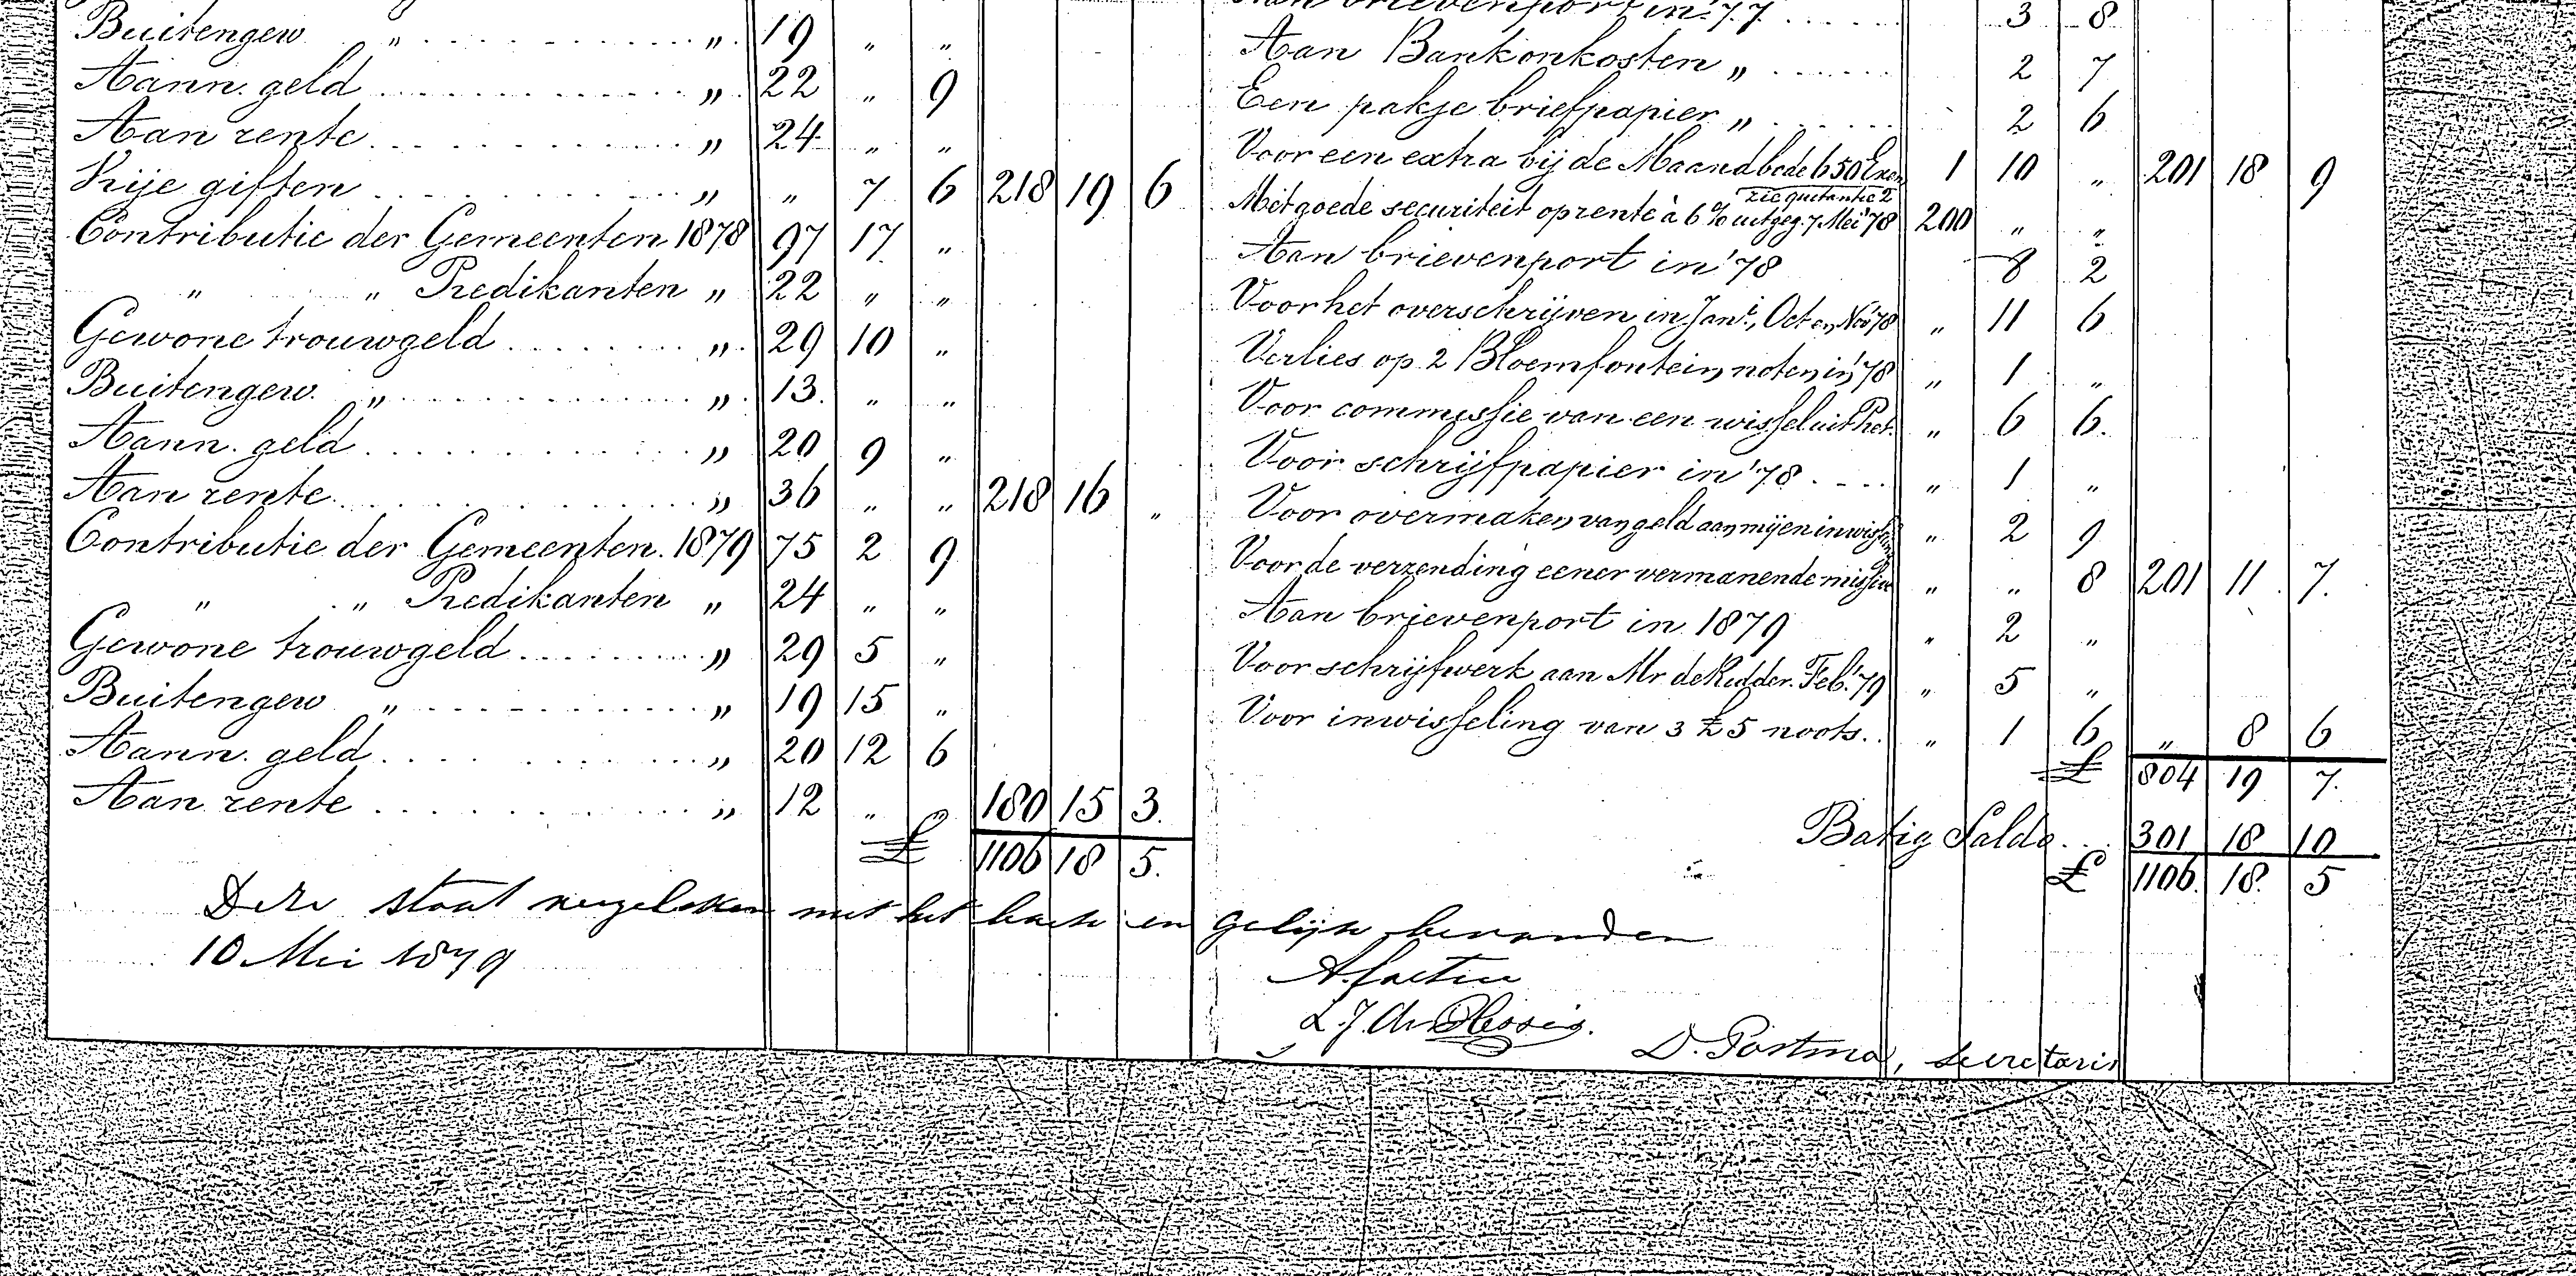 Buitengew „ „ 19 „ „
Aann. geld „ 22 „ 9
Aan rente „ 24 „ „
Vrije giften „ „ 7 6 218 19 6
Contributie der Gemeenten 1878 97 17 „
„ „ Predikanten „ 22 „ „
Gewone trouwgeld „ 29 10 „
Buitengew. „ „ 13 „ „
Aann. geld „ 20 9 „
Aan rente „ 36 „ „ 218 16 „
Contributie der Gemeenten. 1879 75 2 9
„ „ Predikanten „ 24 „ „
Gewone trouwgeld „ 29 5 „
Buitengew „ „ 19 15 „
Aann. geld „ 20 12 6
Aan rente „ 12 „ „ 180 15 3.
£ 1106 18 5.
Aan brievenport in '77 3 8
Aan Bankonkosten „ 2 7
Een pakje briefpapier „ 2 6
Voor een extra bij de Maandbode 650 Exem 1 10 „ 201 18 9
zie quitantie 2
Met goede securiteit op rente à 6% uitgeg. 7 Mei '78 200 „ „
Aan brievenport in '78 8 2
Voor het overschrijven in Jan., Oct en Nov '78 „ 11 6
Verlies op 2 Bloemfontein noten in '78 „ 1 „
Voor commissie van een wissel uit Pret. „ 6 6.
Voor schrijfpapier in '78 „ 1 „
Voor overmaken van geld aan mij en inwisseling „ 2 9
Voor de verzending eener vermanende missive „ „ 8 201 11 7.
Aan brievenport in 1879 „ 2 „
Voor schrijfwerk aan Mr de Ridder. Feb. '79 „ 5 „
Voor inwisseling van 3 £5 noots. „ 1 6 „ 8 6
£ 804 19 7.
Batig Saldo 301 18 10
£ 1106. 18. 5
Deze staat vergeleken met het boek en gelijk bevonden
10 Mei 1879
L. J. du Plessis.
D. Postma, secretaris